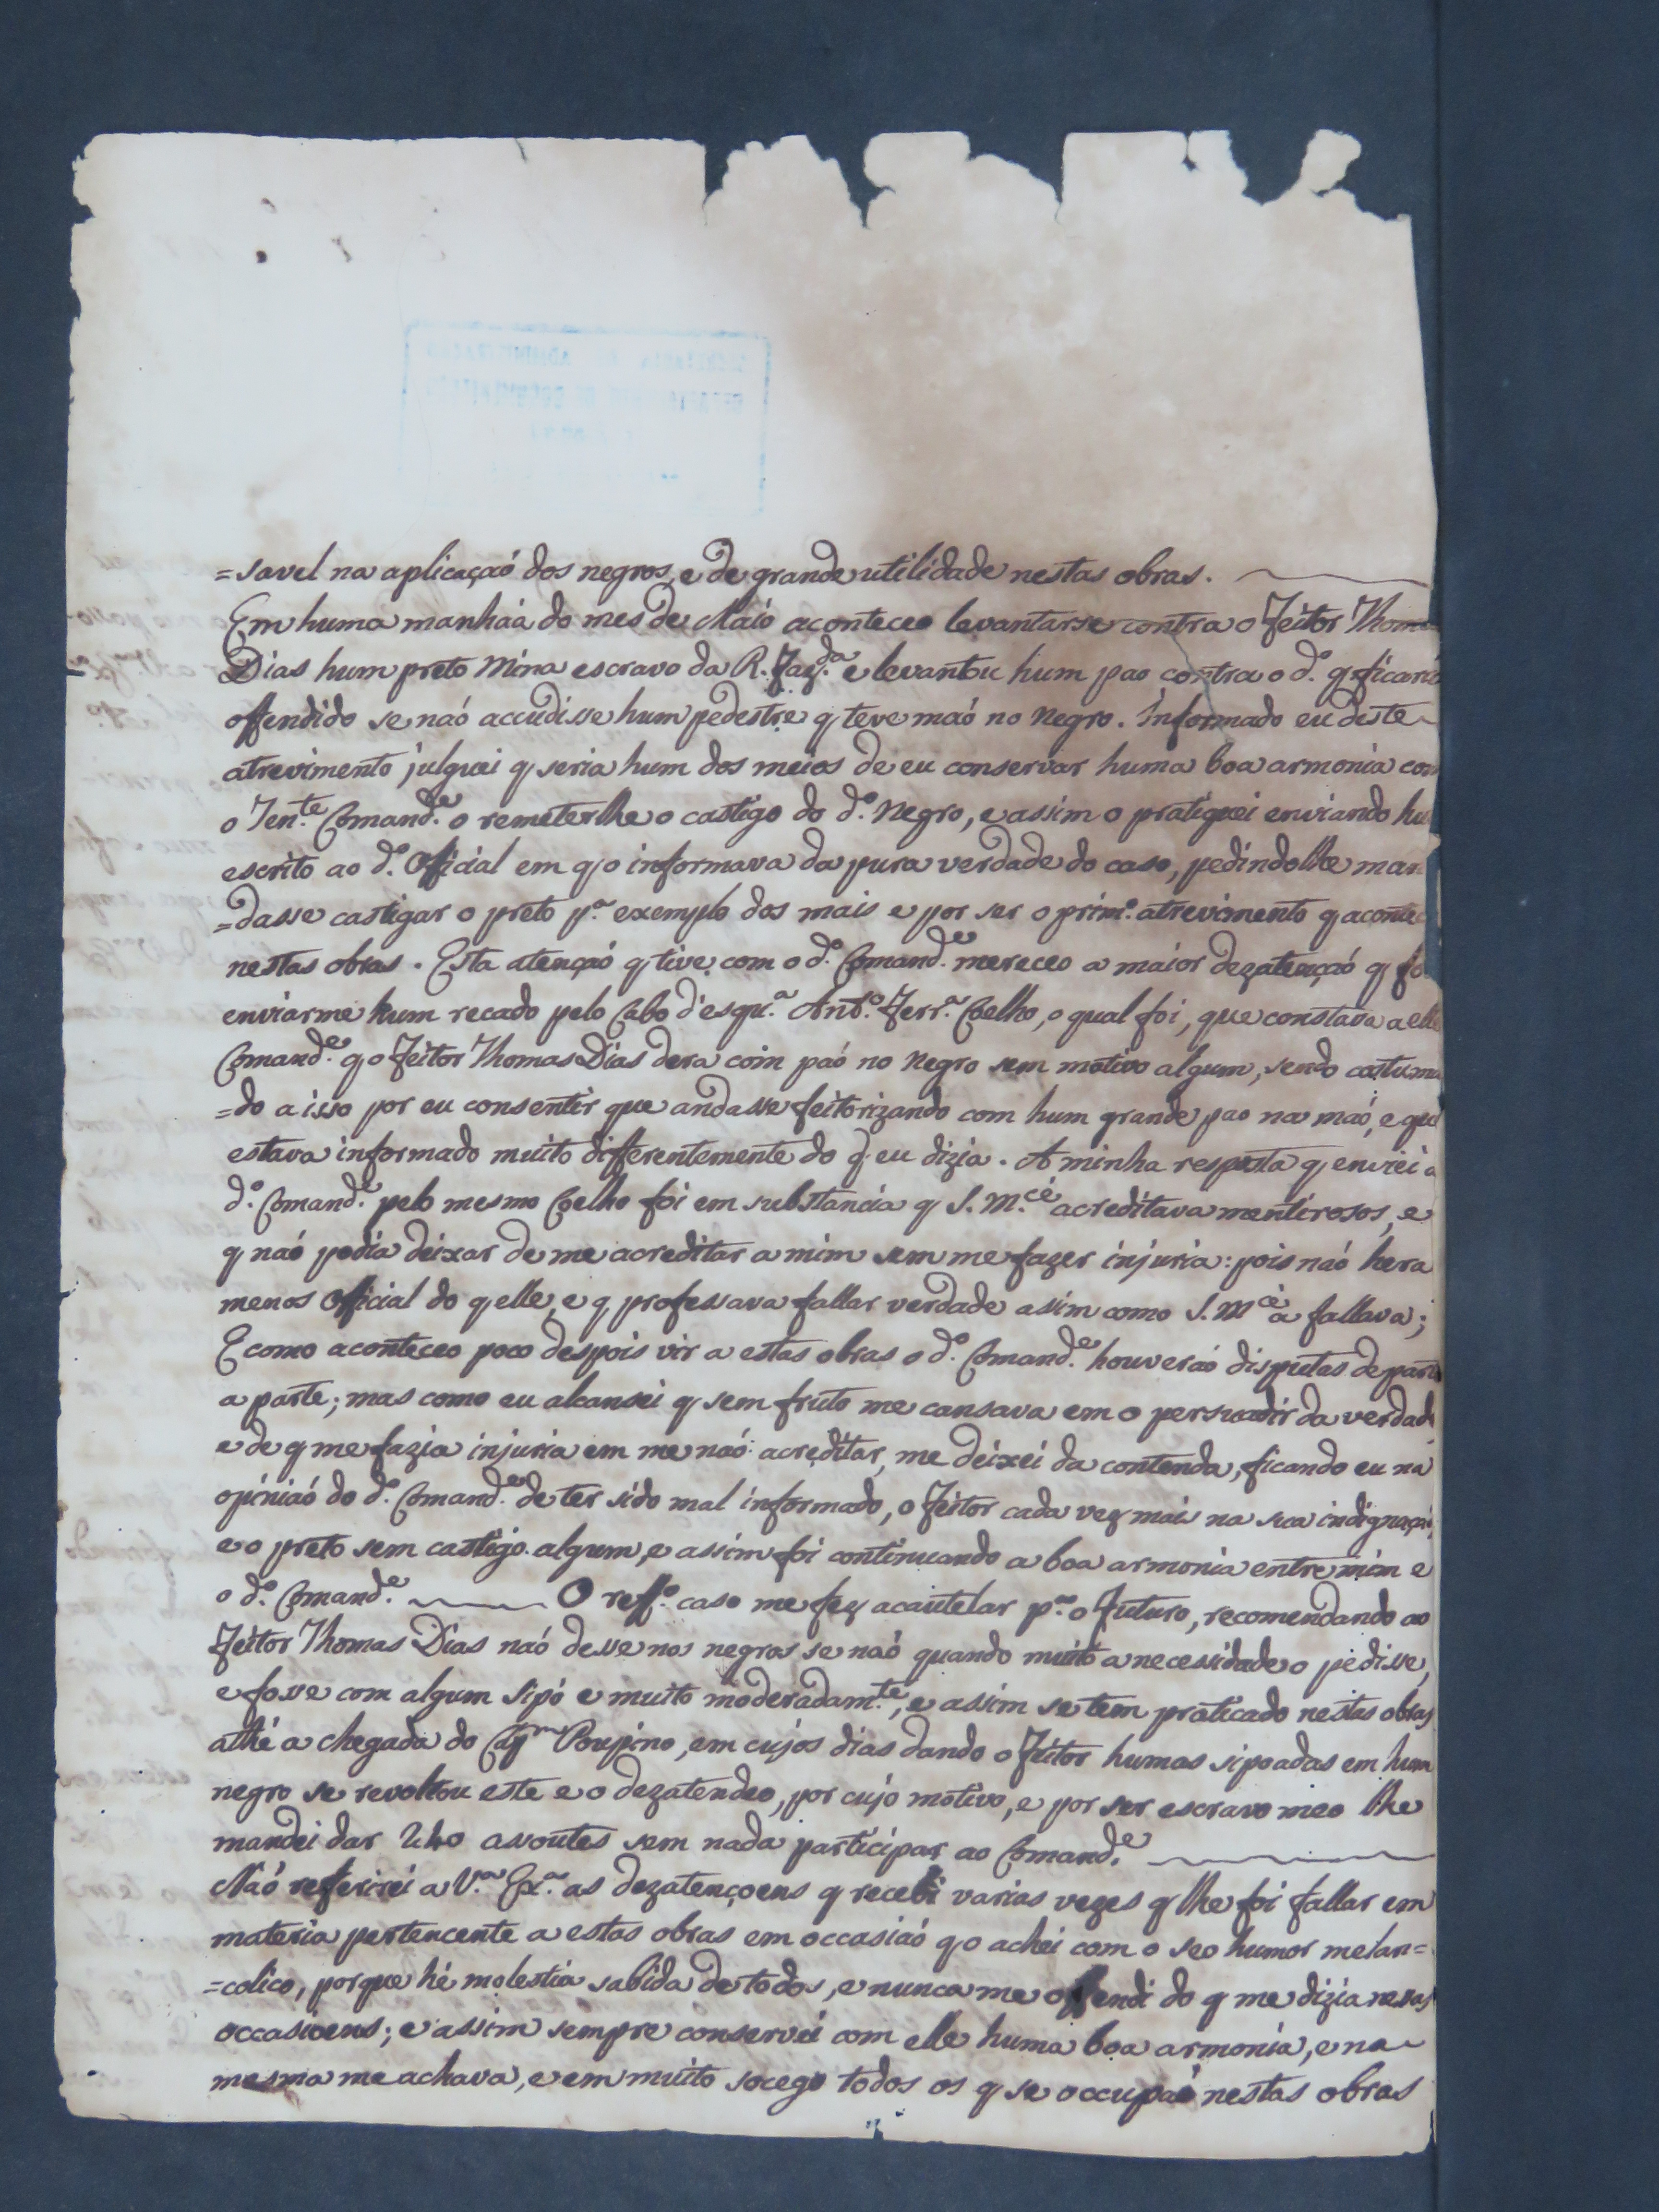 =savel na aplicaçaó dos negros, e de grande utilidade nestas obras.
Em huma manháa do mes de Maió aconteceo levantarse contra o Feitor Thomas
Dias hum preto Mina escravo da R. Faz.da e levantou hum pao contra o d.o q ficaria
offendido se naó accudisse hum pedestre q teve maó no negro. Informado eu deste
atrevimento julguei q seria hum dos meios de eu conservar huma boa armonia com
o Ten.te Comand.e o remeterlhe o castigo do d.o Negro, e assim o pratiquei enviando hu
escrito ao d.o Official em q o informava da pura verdade do caso, pedindolhe man
=dasse castigar o preto p.a exemplo dos mais e por ser o prim.o atrevimento q aconte
nestas obras. Esta atençaó q tive com o d.o Comand.e mereceo a maior dezatençaó q fo
enviarme hum recado pelo Cabo d'esqu.a Ant.o Ferr.a Coelho, o qual foi, que constava a elle
Comand.e q o Feitor Thomas Dias dera com paó no negro sem motivo algum, sendo costuma
=do a isso por eu consentir que andasse feitorizando com hum grande pao na maó, e que
estava informado muito differentemente do q eu dizia. A minha resposta q enviei a
d.o Comand.e pelo mesmo Coelho foi em substancia q S. M.cê acreditava mentirosos, e
q naó podia deixar de me acreditar a mim sem me fazer injuria: pois naó hera
menos Official do q elle, e q professava fallar verdade asim como S. M.cê a fallava;
E como aconteceo poco despois vir a estas obras o d.o Comand.e houveraó disputas de parte
a parte; mas como eu alcansei q sem fruto me cansava em o persuadir da verdade
e de q me fazia injuria em me naó acreditar, me deixei da contenda, ficando eu na
opiniaó do d.o Comand.e de ter sido mal informado, o Feitor cada vez mais na sua indignaçaó,
e o preto sem castigo algum, e assim foi continuando a boa armonia entre mim e
o d.o Comand.e O reff.o caso me fez acautelar p.a o futuro, recomendando ao
Feitor Thomas Dias naó desse nos negros se naó quando muito a necessidade o pedisse,
e fosse com algum sipó e muito moderadam.te, e assim se tem praticado nestas obras
athé a chegada do Cap.m Poupino, em cujos dias dando o Feitor humas sipoadas em hum
negro se revoltou este e o dezatendeo, por cujo motivo, e por ser escravo meo lhe
mandei dar assoutes sem nada participar ao Comand.e
Naó referirei a V.a Ex.a as dezatençoens q recebi varias vezes q lhe foi fallar em
materia pertencente a estas obras em occasiaó q o achei com o seo humor melan=
=colico, porque hé molestia sabida de todos, e nunca me offendi do q me dizia nessas
occasioens; e assim sempre conservei com elle huma boa armonia, e na
mesma me achava, e em muito socego todos os q se occupaó nestas obras